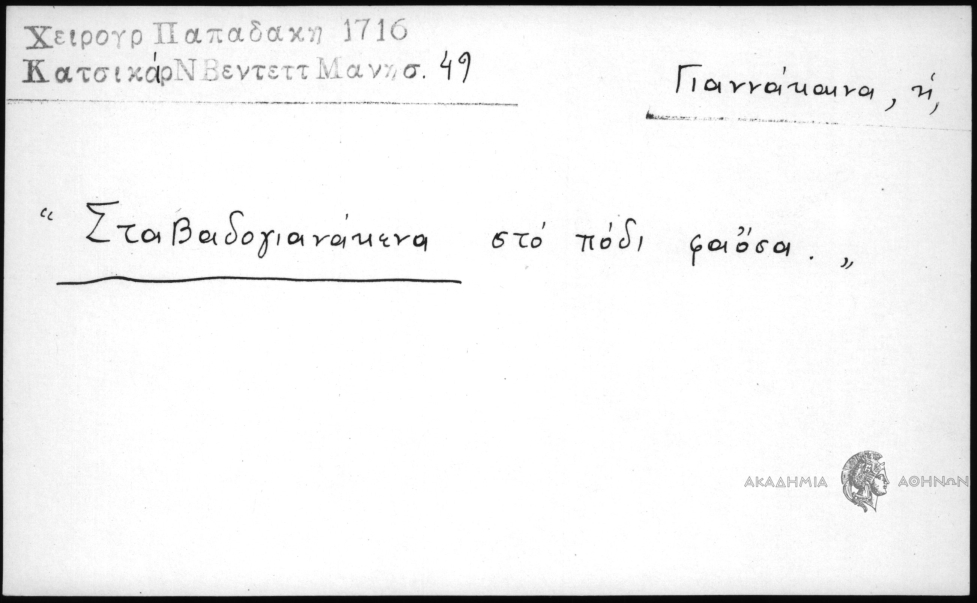 Χειρογρ Παπαδακη 1716
ΚατσικάρΝ Βεντεττ Μανησ. 49
Γιαννάκαινα, ἡ,
“ Σταβαδογιανάκενα στό πόδι φαοσα. „
ΑΚΑΔΗΜΙΑ ΑΘΗΝΩΝ